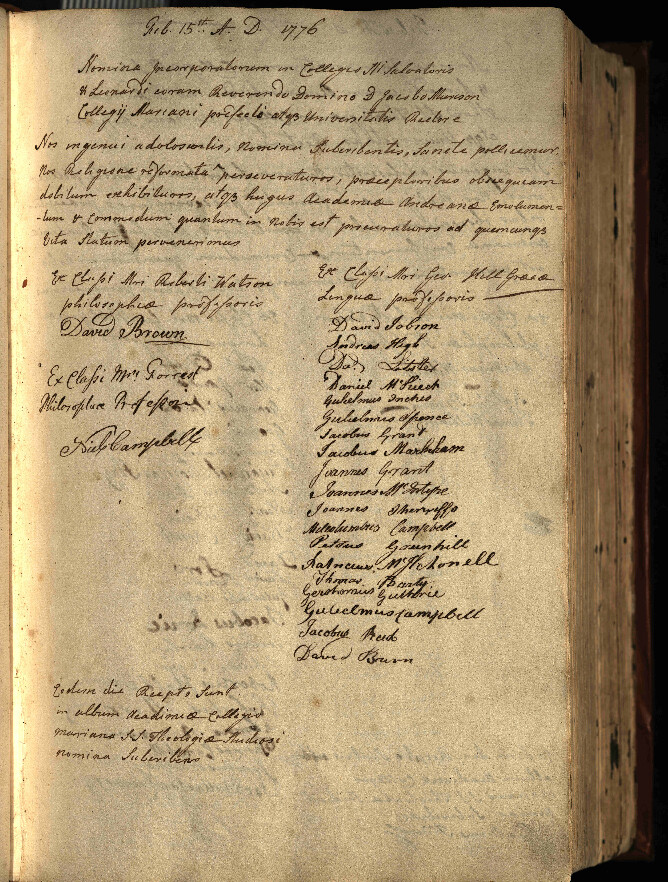 Feb. 15th A. D. 1776
Nomina Incorporatorum in Collegio Sti Salvatoris
& Leonardi coram Reverendo Domino D Jacobo Murison
Collegij Mariani præfecto atqз Universitatis Rectore
Nos ingenui adolescentes, nomina Subscribentes, Sancte pollicemur
nos Religione reformata perseveraturos, præceptoribus obsequium
debitum exhibituros, atqз hujus Academiæ Andreanæ Emolumen=
-tum & Commodum quantum in nobis est procuraturos ad quemcunqз
Vitæ Statum pervenerimus
Ex Classi Mri Roberti Watson
philosophiæ professoris
David Brown
Ex Classi Mri Forrest
Philosophiæ Professoris
Niel Campbell
Ex Classi Mri Geo. Hill Græcæ
Linguæ professoris
David Jobson
Andreas High
Da: Lister
Daniel
Gulielmus Inches
Gulielmus Spence
Jacobus Grant
Jacobus Markham
Joannes Grant
Joannes McIntyre
Joannes Sherreffs
Malcolumbus Campbell
Petrus Greenhill
Thomas
Guthrie
Gulielmus Campbell
Jacobus Reid
David Brown
Eodem die Recepti Sunt
in album Academiæ Collegio
mariano S.S. Theologiæ Studiosi
nomina Subscribens